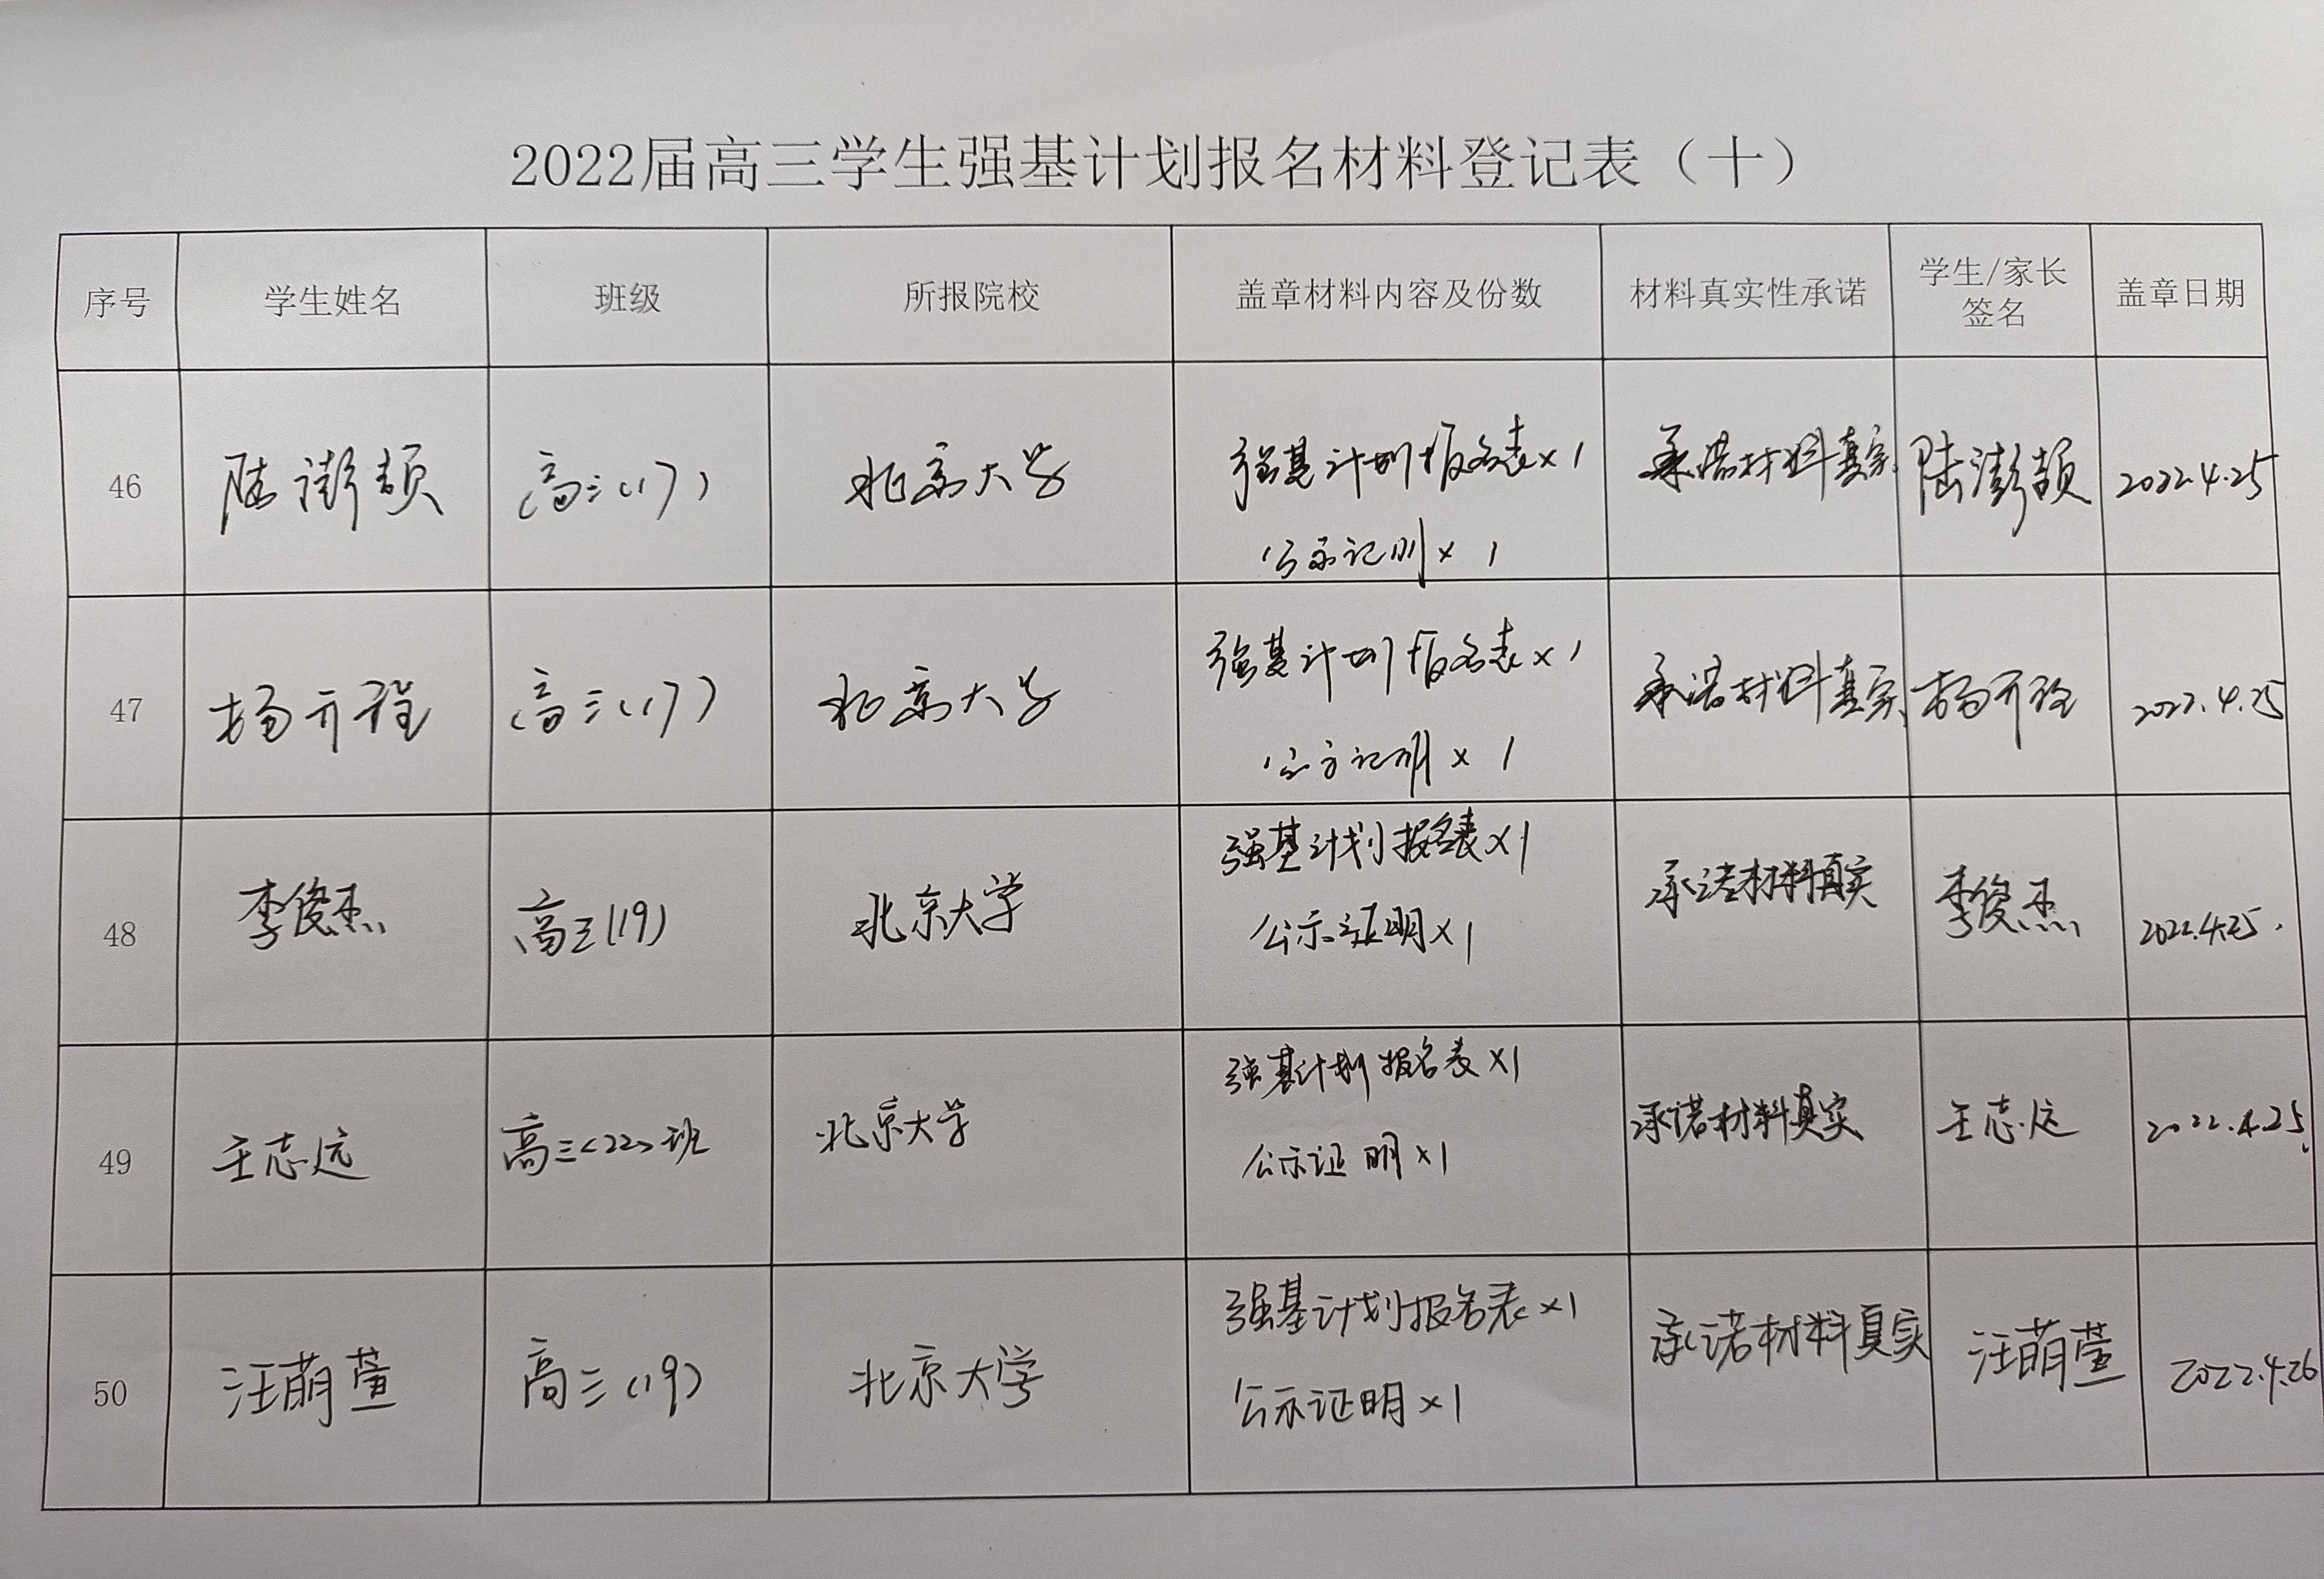 2022届高三学生强基计划报名材料登记表（十）
序号 学生姓名 班级 所报院校 盖章材料内容及份数 材料真实性承诺 学生/家长 盖章日期
签名
46 陆澎颉 高三(17) 北京大学 强基计划报名表×1 承诺材料真实 陆澎颉 2022.4.25
公示证明×1
47 杨亓程 高三(17) 北京大学 强基计划报名表×1 承诺材料真实 杨亓程 2022.4.25
公示证明×1
48 李俊杰 高三(19) 北京大学 强基计划报名表×1 承诺材料真实 李俊杰 2022.4.25.
公示证明×1
49 王志远 高三<22>班 北京大学 强基计划报名表×1 承诺材料真实 王志远 2022.4.25
公示证明×1
50 汪萌萱 高三(19) 北京大学 强基计划报名表×1 承诺材料真实 汪萌萱 2022.4.26
公示证明×1